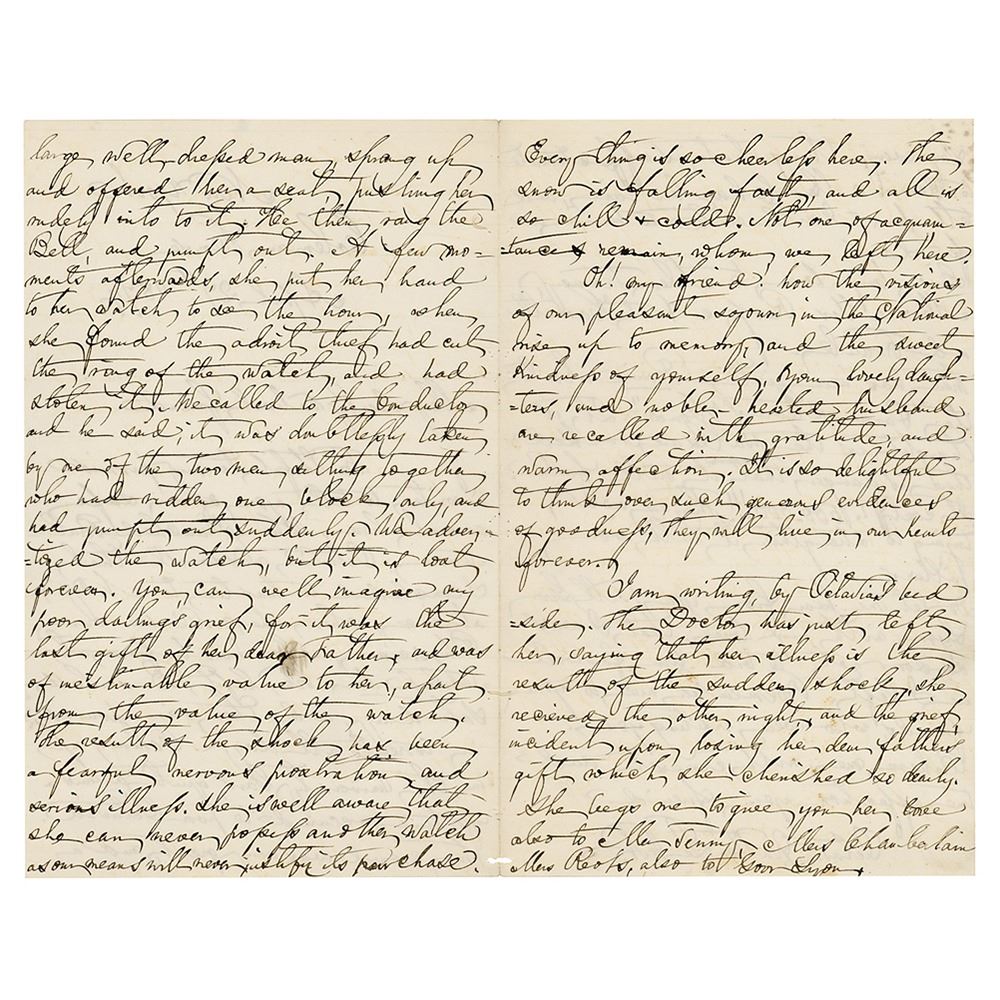 large, well, dressed man, sprang up
and offered her a seat, pushing her
rudely into to it. He then rang the
Bell, and jumpt out. A few mo-
ments afterwards, she put her hand
to her watch to see the hour, when
she found the adroit thief had cut
the ring of the watch, and had
stolen it. We called to the Conductor
and he said; it was doubtlessly taken
by one of the two men sitting together
who had ridden one block only, and
had jumpt out suddenly. We adver-
=tized the watch, but it is lost
forever. You, can well imagine my
poor darlings grief, for it was the
last gift of her dear Father, and was
of inestimable value to her, apart
from the value of the watch.
The result of the shock has been
a fearful nervous prostration, and
serious illness. She is well aware that
she can never possess another watch
as our means will never justify its purchase.
Every thing is so cheerless here. The
snow is falling fast, and all is
so chill & cold. Not one of acquain=
=tance remain, whom we left here.
Oh! my friend! how the visions
of our pleasant sojourn, in the National
rise up to memory, and the sweet
Kindness of yourself, your lovely daugh=
=ters, and noble-hearted husband
are recalled with gratitude, and
warm affection. It is so delightful
to think over such generous evidences
of goodness, they will live in our hearts
forever.
I am writing, by Octavias bed
=side. The Doctor has just left
her, saying that her illness is the
result of the sudden shock, she
recieved the other night, and the grief,
incident upon losing her dear fathers
gift which she cherished so dearly.
She begs me to give you her love
also to Mrs Chamberlain
Mrs Roots, also to Govr Lyon,